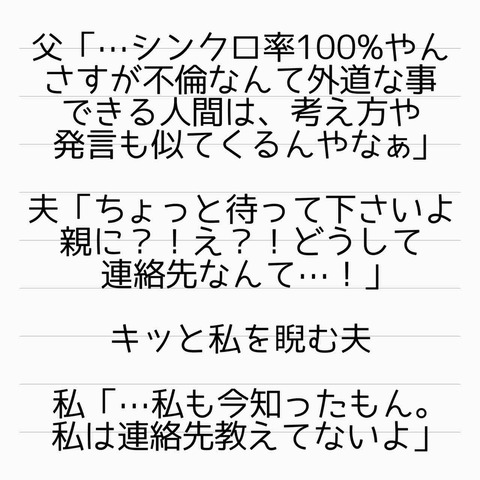 父「…シンクロ率100%やん
さすが不倫なんて外道な事
できる人間は、考え方や
発言も似てくるんやなぁ」
夫「ちょっと待って下さいよ
親に？！え？！どうして
連絡先なんて…！」
キッと私を睨む夫
私「…私も今知ったもん。
私は連絡先教えてないよ」